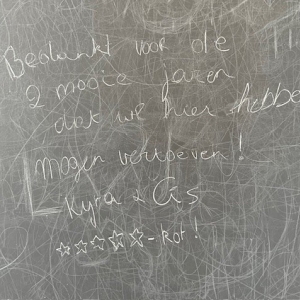 Bedankt voor de
2 mooie jaren
dat we hier hebbe
mogen vertoeven!
Kyra &
☆☆☆☆☆-Rot!